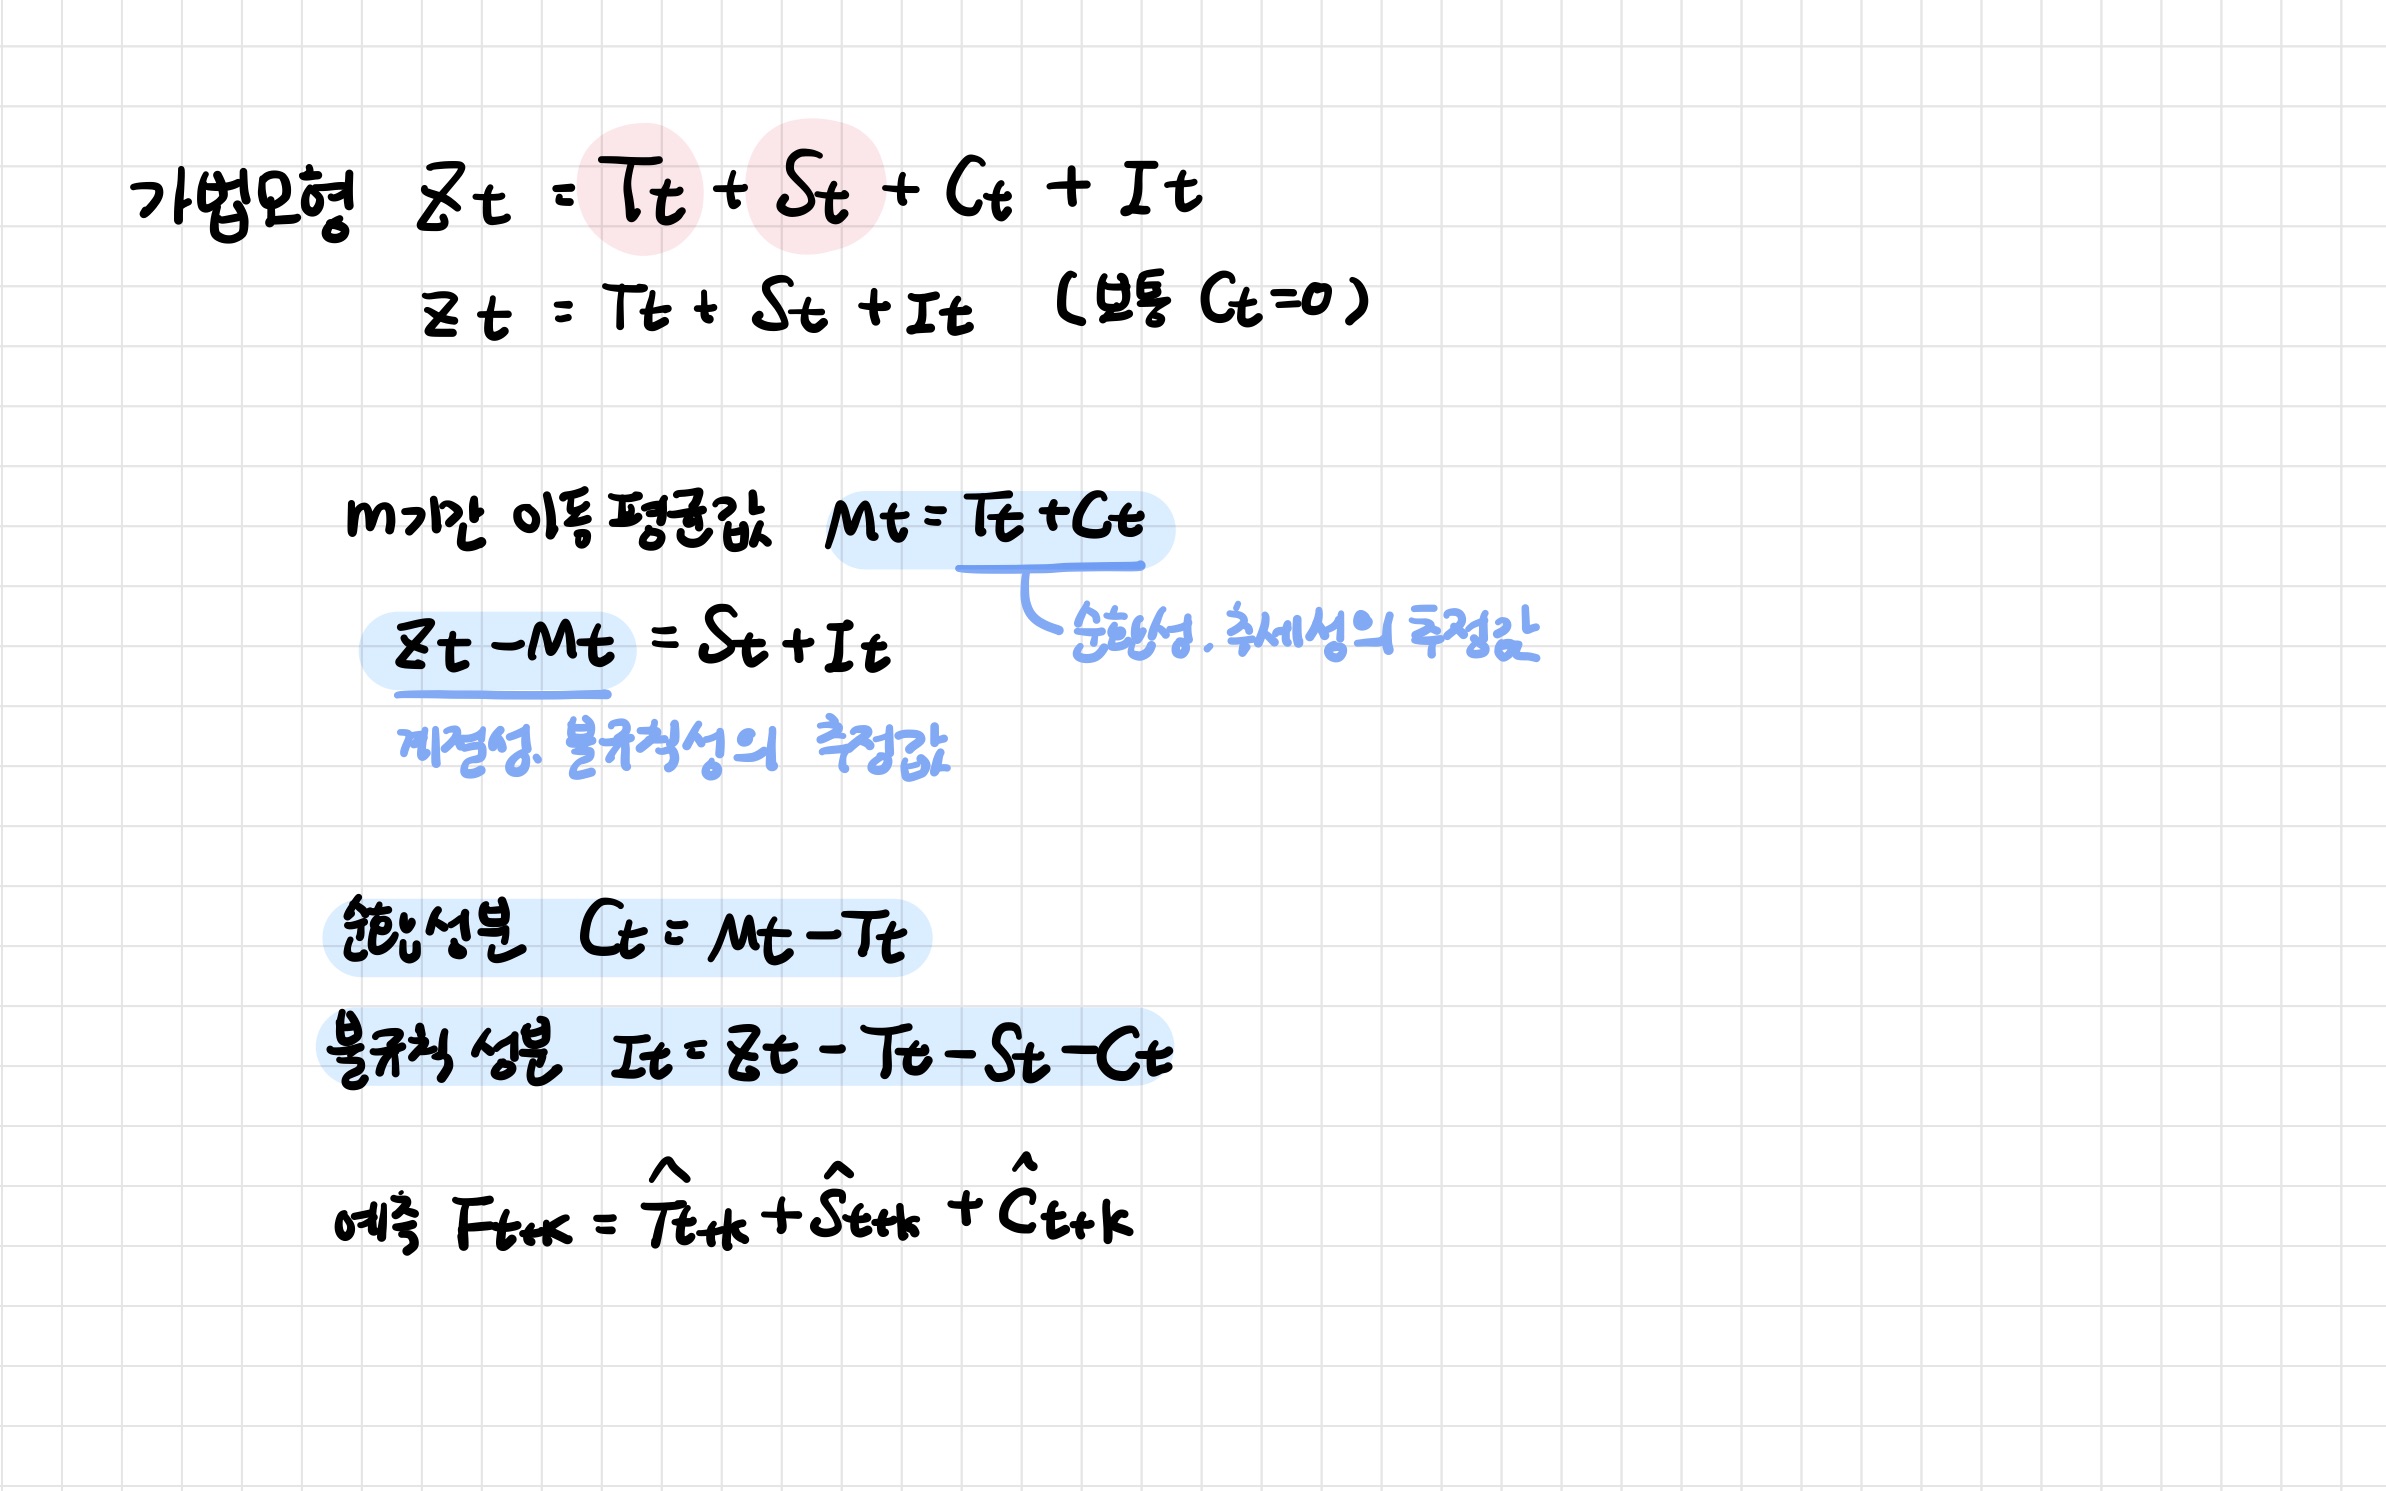 가법모형 Zt = Tt + St + Ct + It
Zt = Tt + St + It (보통 Ct=0)
m기간 이동평균값 Mt = Tt + Ct
Zt - Mt = St + It
순환성, 추세성의 추정값
계절성, 불규칙성의 추정값
순환성분 Ct = Mt - Tt
불규칙 성분 It = Zt - Tt - St - Ct
예측 Ft+k = T̂t+k + Ŝt+k + Ĉt+k